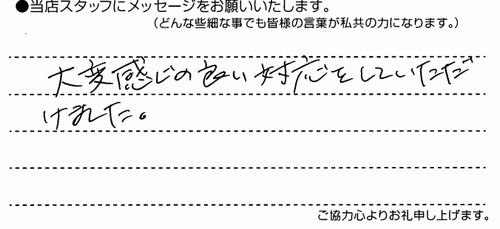 ●当店スタッフにメッセージをお願いいたします。
(どんな些細な事でも皆様の言葉が私共の力になります。)
大変感じの良い対応をしていただ
けました。
ご協力心よりお礼申し上げます。